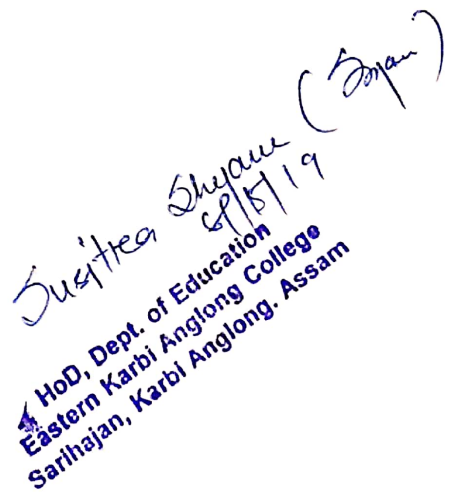 Shyam
8/5/19
HoD, Dept. of Education
Eastern Karbi Anglong College
Sarihajan, Karbi Anglong. Assam